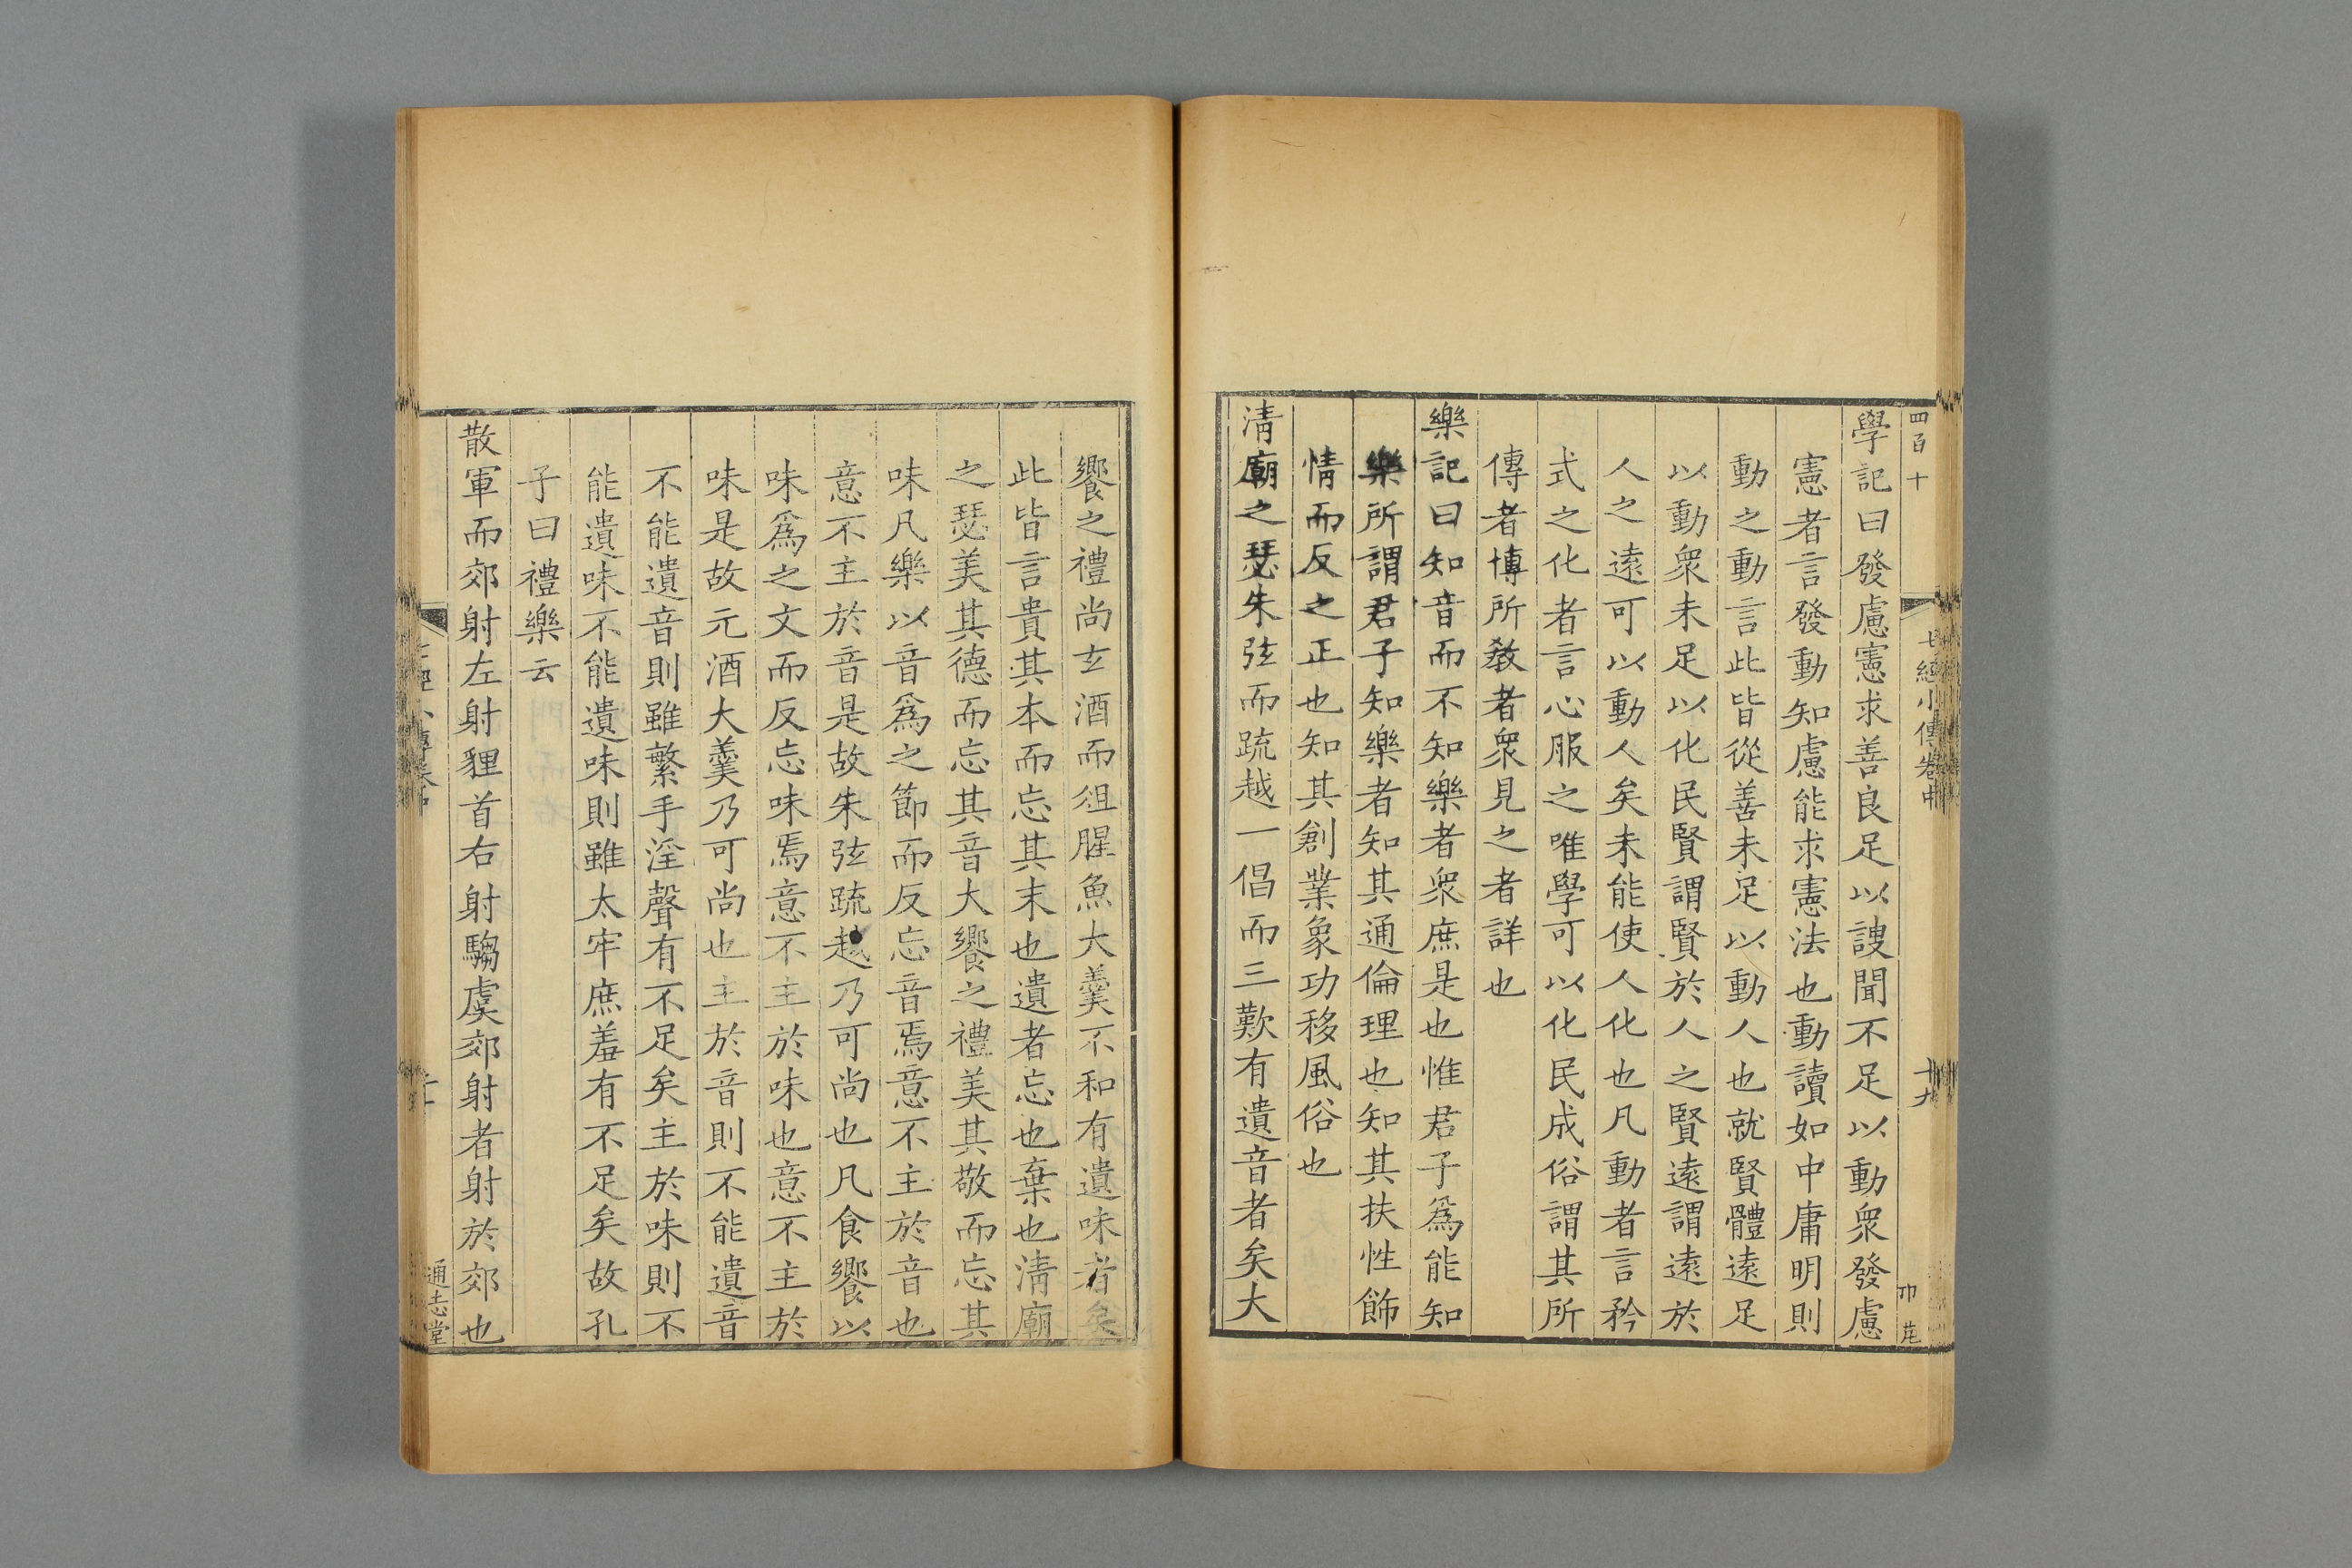 四百十
七經小傳卷中
十九
學記曰發慮憲求善良足以謏聞不足以動衆發慮
憲者言發動知慮能求憲法也動讀如中庸明則
動之動言此皆從善未足以動人也就賢體遠足
以動衆未足以化民賢謂賢於人之賢遠謂遠於
人之遠可以動人矣未能使人化也凡動者言矜
式之化者言心服之唯學可以化民成俗謂其所
傳者博所敎者衆見之者詳也
樂記曰知音而不知樂者衆庶是也惟君子爲能知
樂所謂君子知樂者知其通倫理也知其扶性飾
情而反之正也知其創業象功移風俗也
淸廟之瑟朱弦而疏越一倡而三歎有遺音者矣大
饗之禮尚玄酒而俎腥魚大羹不和有遺味者矣
此皆言貴其本而忘其末也遺者忘也棄也淸廟
之瑟美其德而忘其音大饗之禮美其敬而忘其
味凡樂以音爲之節而反忘音焉意不主於音也
意不主於音是故朱弦疏越乃可尚也凡食饗以
味爲之文而反忘味焉意不主於味也意不主於
味是故元酒大羹乃可尚也主於音則不能遺音
不能遺音則雖繁手淫聲有不足矣主於味則不
能遺味不能遺味則雖太牢庶羞有不足矣故孔
子曰禮樂云
散軍而郊射左射貍首右射騶虞郊射者射於郊也
通志堂